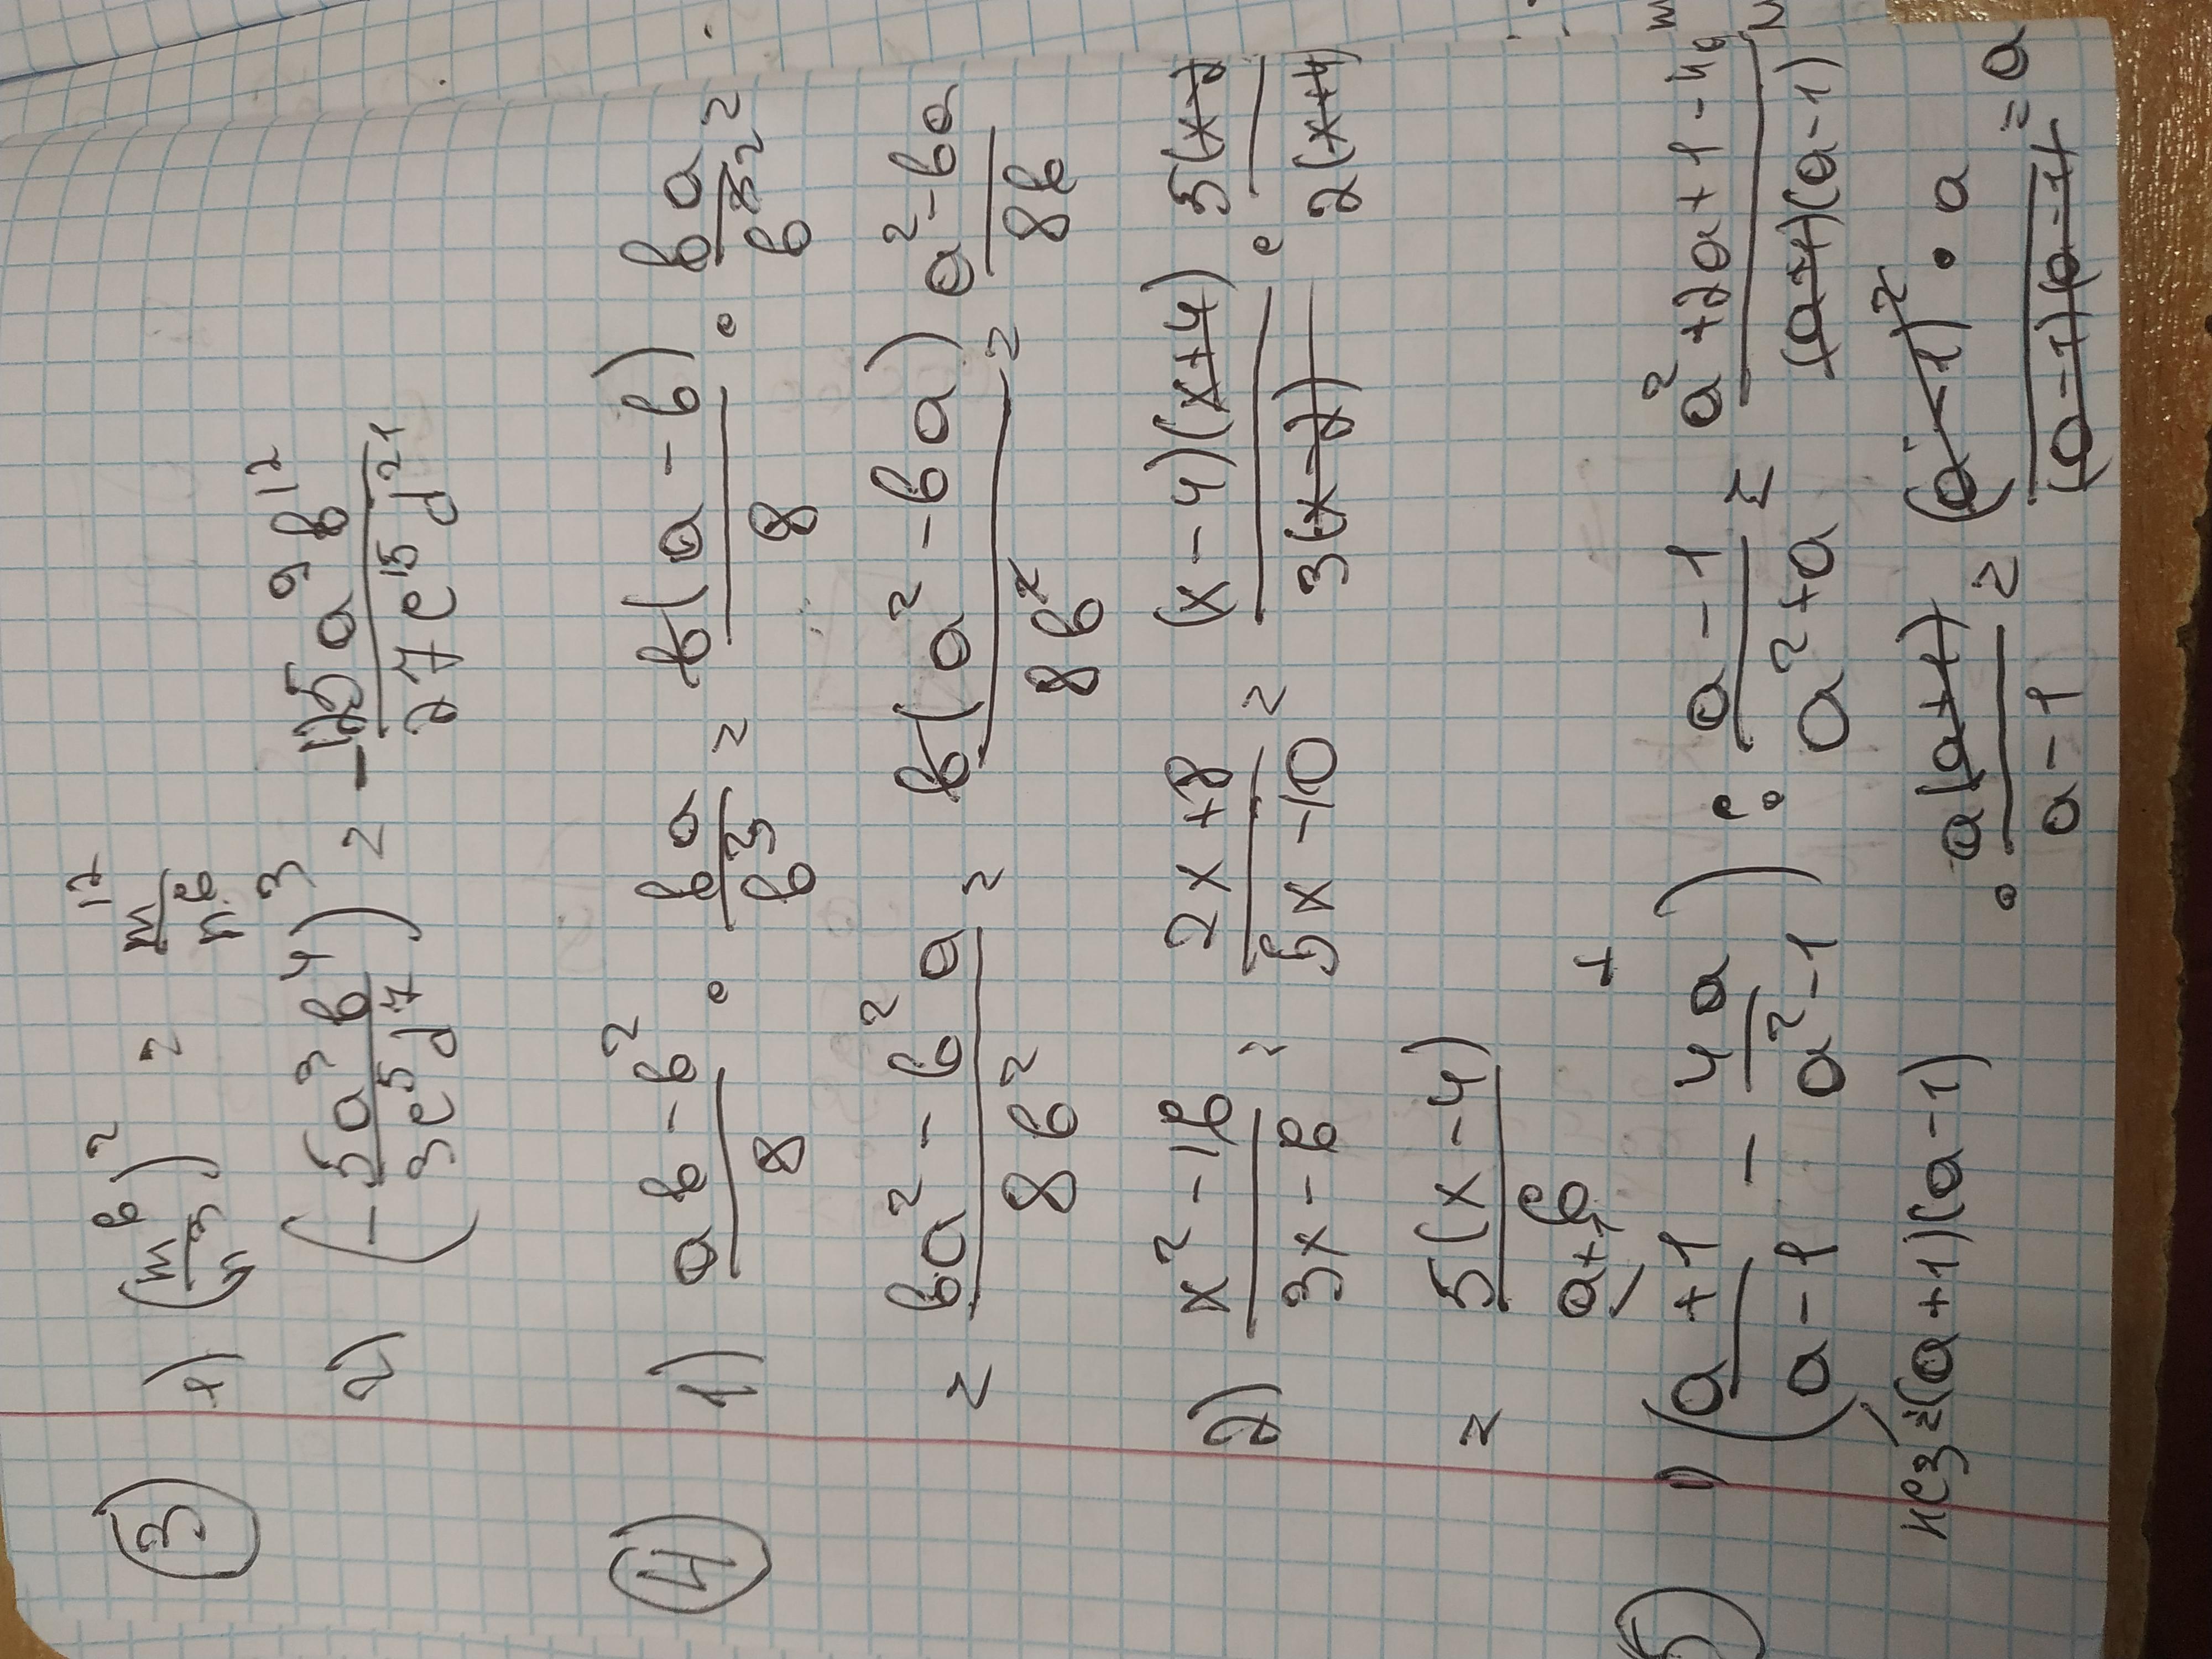 ③ 1) (m⁶/n³)² = m¹²/n⁶
2) (-5a³b⁴/3c⁵d⁷)³ = -125a⁹b¹²/27c¹⁵d²¹
④ 1) ab-b²/8 · ba/b³ = b(a-b)/8 · ba/b³ =
= ba²-b²a/8b² = b(a²-ba)/8b² = a²-ba/8b
2) x²-16/3x-6 : 2x+8/5x-10 = (x-4)(x+4)/3(x-2) · 5(x-2)/2(x+4)
= 5(x-4)/6
a+1
⑤ 1) (a+1/a-1 - 4a/a²-1) : a-1/a²+a = a²+2a+1-4a/(a+1)(a-1)
· a(a+1)/a-1 = (a-1)² · a/(a-1)(a-1) = a
НСЗ=(a+1)(a-1)